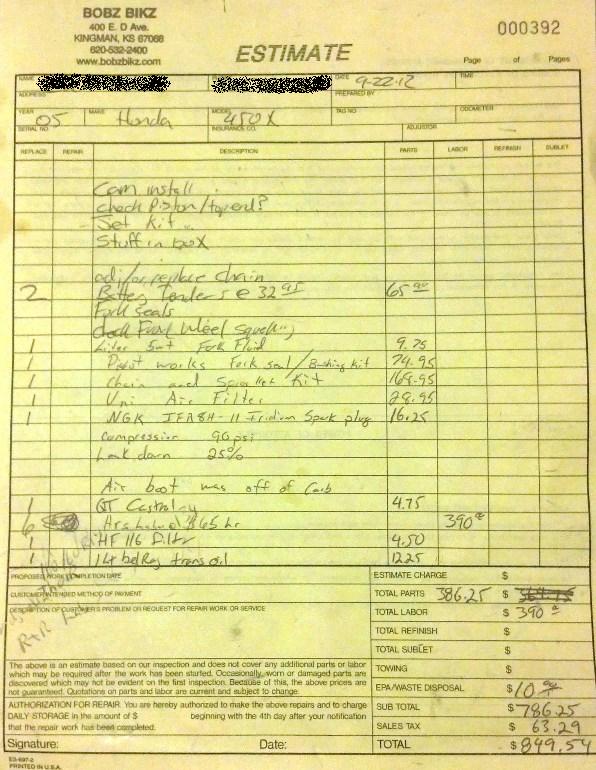 BOBZ BIKZ
400 E. D Ave.
KINGMAN, KS 67068
620-532-2400
www.bobzbikz.com
000392
ESTIMATE
Page of Pages
NAME DATE 9-22-12 TIME
ADDRESS PREPARED BY
YEAR 05 MAKE Honda MODEL 450X TAG NO ODOMETER
SERIAL NO. INSURANCE CO. ADJUSTOR
REPLACE REPAIR DESCRIPTION PARTS LABOR REFINISH SUBLET
Cam install
Check Piston/topend?
Jet Kit
Stuff in box
adj/or replace chain
2 Battery Tenders @ 32 95 65 90
Fork seals
check Front Wheel
1 Liter 5wt Fork Fluid 9.75
1 Pivot works Fork seal/Bushing kit 74.95
1 Chain and Sprocket Kit 169.95
1 Uni Air Filter 28.95
1 NGK IFR8H-11 Iridium Spark plug 16.25
Compression 90 psi
Leak down 25%
Air boot was off of Carb
1 QT Castrol 4.75
6 Hrs $65 hr 390
1 HF 116 Filtr 4.50
1 belRay trans oil 12.25
PROPOSED WORK COMPLETION DATE
CUSTOMER INTENDED METHOD OF PAYMENT
DESCRIPTION OF CUSTOMER'S PROBLEM OR REQUEST FOR REPAIR WORK OR SERVICE
R+R
ESTIMATE CHARGE $
TOTAL PARTS 386.25 $
TOTAL LABOR $ 390
TOTAL REFINISH $
TOTAL SUBLET $
TOWING $
EPA/WASTE DISPOSAL $ 10
SUB TOTAL $ 786.25
SALES TAX $ 63.29
TOTAL $ 849.54
The above is an estimate based on our inspection and does not cover any additional parts or labor
which may be required after the work has been started. Occasionally, worn or damaged parts are
discovered which may not be evident on the first inspection. Because of this, the above prices are
not guaranteed. Quotations on parts and labor are current and subject to change.
AUTHORIZATION FOR REPAIR. You are hereby authorized to make the above repairs and to charge
DAILY STORAGE in the amount of $ beginning with the 4th day after your notification
that the repair work has been completed.
Signature: Date:
E3-697-2
PRINTED IN U.S.A.